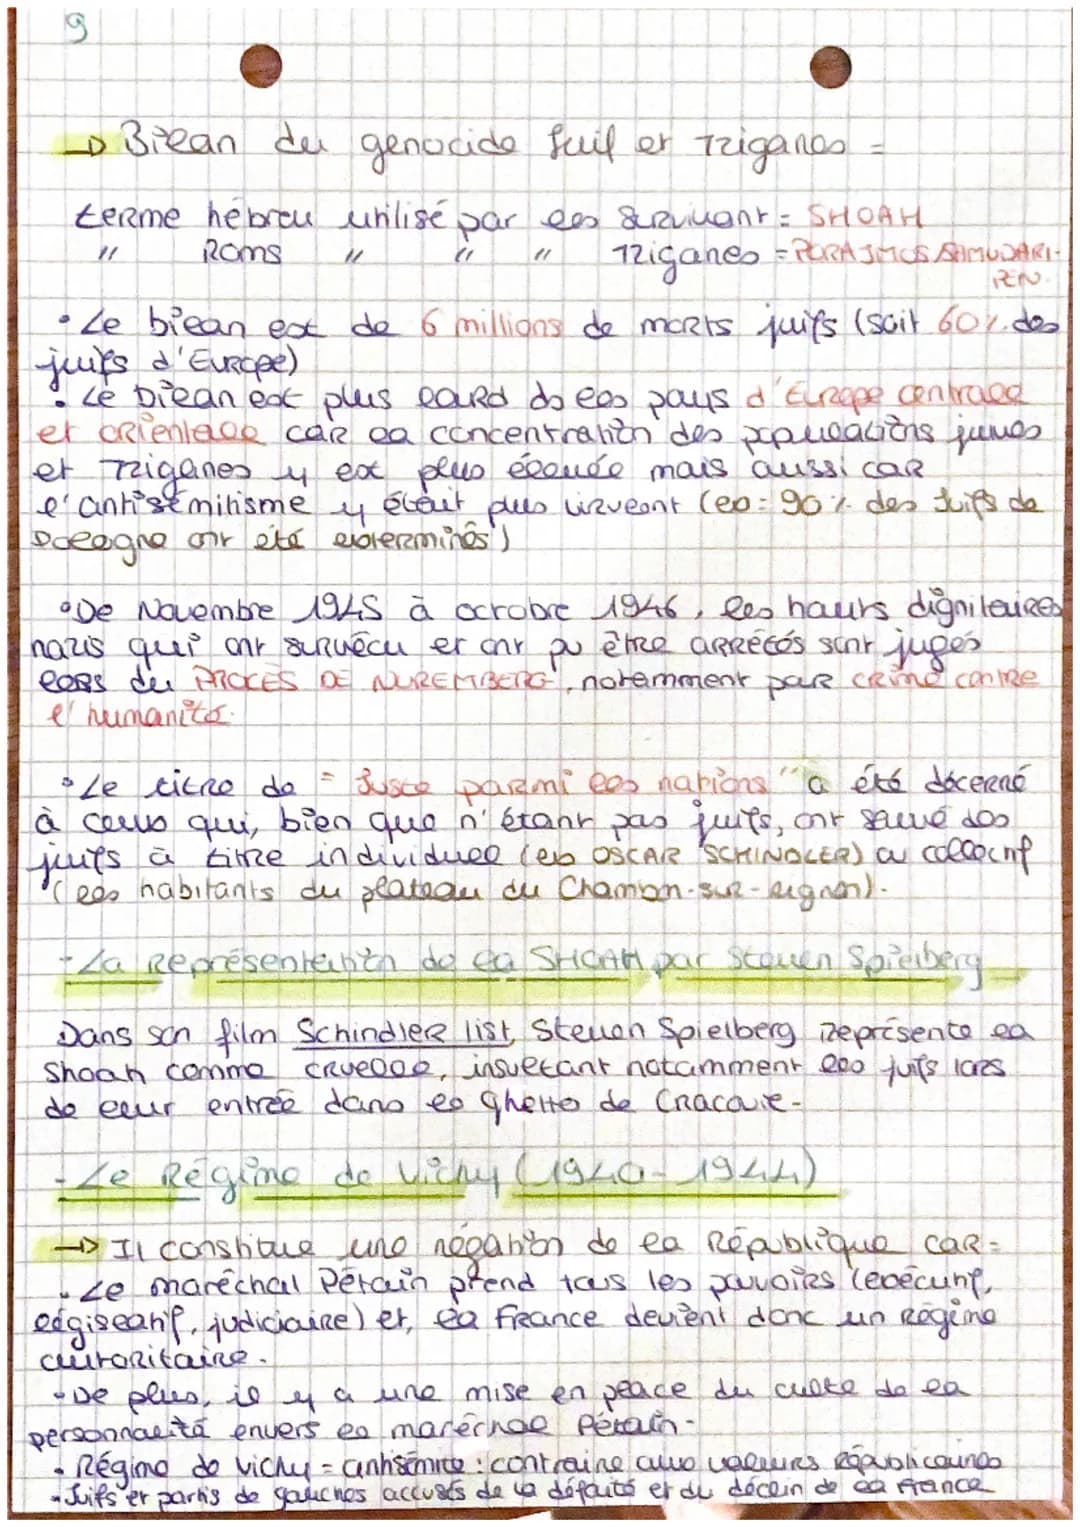 9
→ Bilan du génocide Juif et Tziganes =
terme hébreu utilisé par les survivant = SHOAH
" Roms " " " Tziganes = PORAJMOS SAMUDARI-
PEN.
• Le bilan est de 6 millions de morts juifs (soit 60% des
juifs d'Europe)
• Le bilan est plus lourd ds les pays d'Europe centrale
et orientale car la concentration des populations juives
et Tziganes y est plus élevée mais aussi car
l'antisémitisme y était plus virulent (ex: 90% des Juifs de
Pologne ont été exterminés)
• De Novembre 1945 à octobre 1946, les hauts dignitaires
nazis qui ont survécu et ont pu être arrêtés sont jugés
lors du PROCÈS DE NUREMBERG, notamment par crime contre
l'humanité.
• Le titre de "Juste parmi les nations" a été décerné
à ceux qui, bien que n'étant pas juifs, ont sauvé des
juifs à titre individuel (ex OSCAR SCHINDLER) ou collectif
(les habitants du plateau du Chambon-sur-Lignon).
- La Représentation de la SHOAH par Steven Spielberg
Dans son film Schindler list, Steven Spielberg représente la
Shoah comme cruelle, insultant notamment les juifs lors
de leur entrée dans le ghetto de Cracovie.
- Le Régime de Vichy (1940-1944)
→ Il constitue une négation de la République car =
• Le maréchal Pétain prend tous les pouvoirs (exécutif,
législatif, judiciaire) et, la France devient donc un Régime
autoritaire.
• De plus, il y a une mise en place du culte de la
personnalité envers le maréchal Pétain.
• Régime de Vichy = antisémite : contraire aux valeurs Républicaines
• Juifs et partis de gauches accusés de la défaite et du déclin de la France